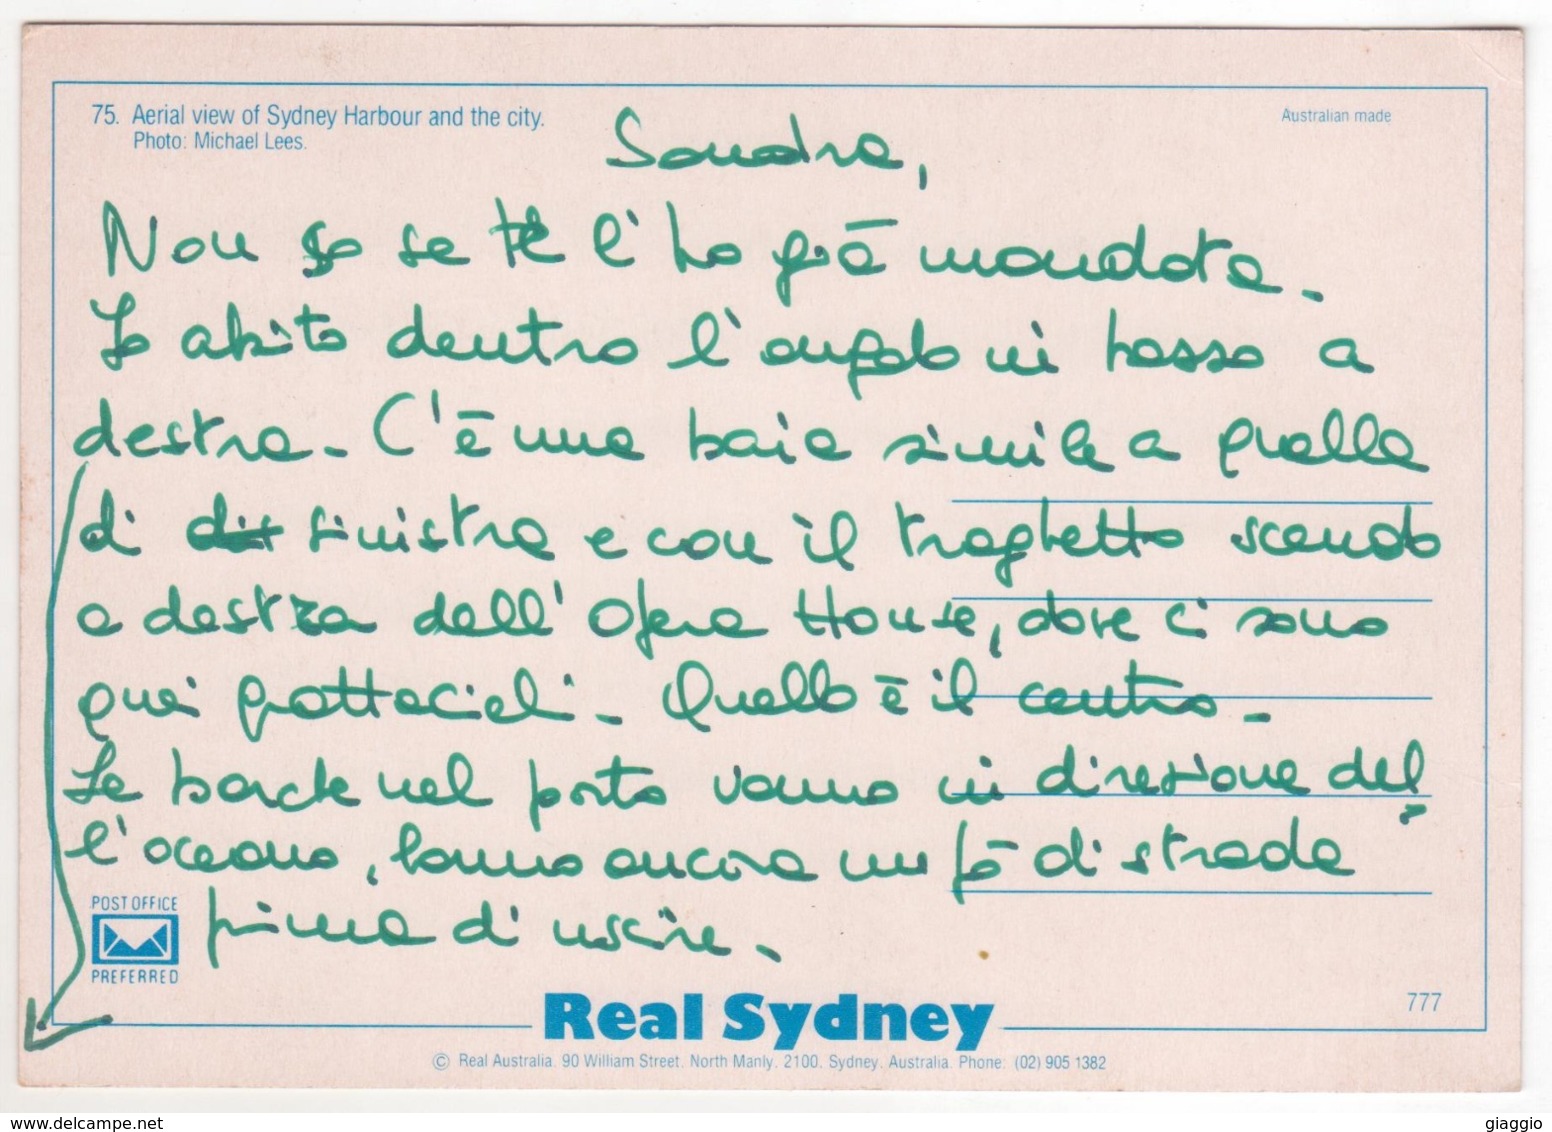 75. Aerial view of Sydney Harbour and the city.
Photo: Michael Lees.
Australian made
Sandra,
Non so se te l'ho già mandata.
Io abito dentro l'angolo in basso a
destra. C'è una baia simile a quella
di sinistra e con il traghetto scendo
a destra dell'Opera House, dove ci sono
quei grattacieli. Quello è il centro.
Le barche nel porto vanno in direzione del
l'oceano, hanno ancora un pò di strada
prima di uscire.
POST OFFICE
PREFERRED
Real Sydney
777
© Real Australia. 90 William Street. North Manly. 2100. Sydney. Australia. Phone: (02) 905 1382
www.delcampe.net
giaggio